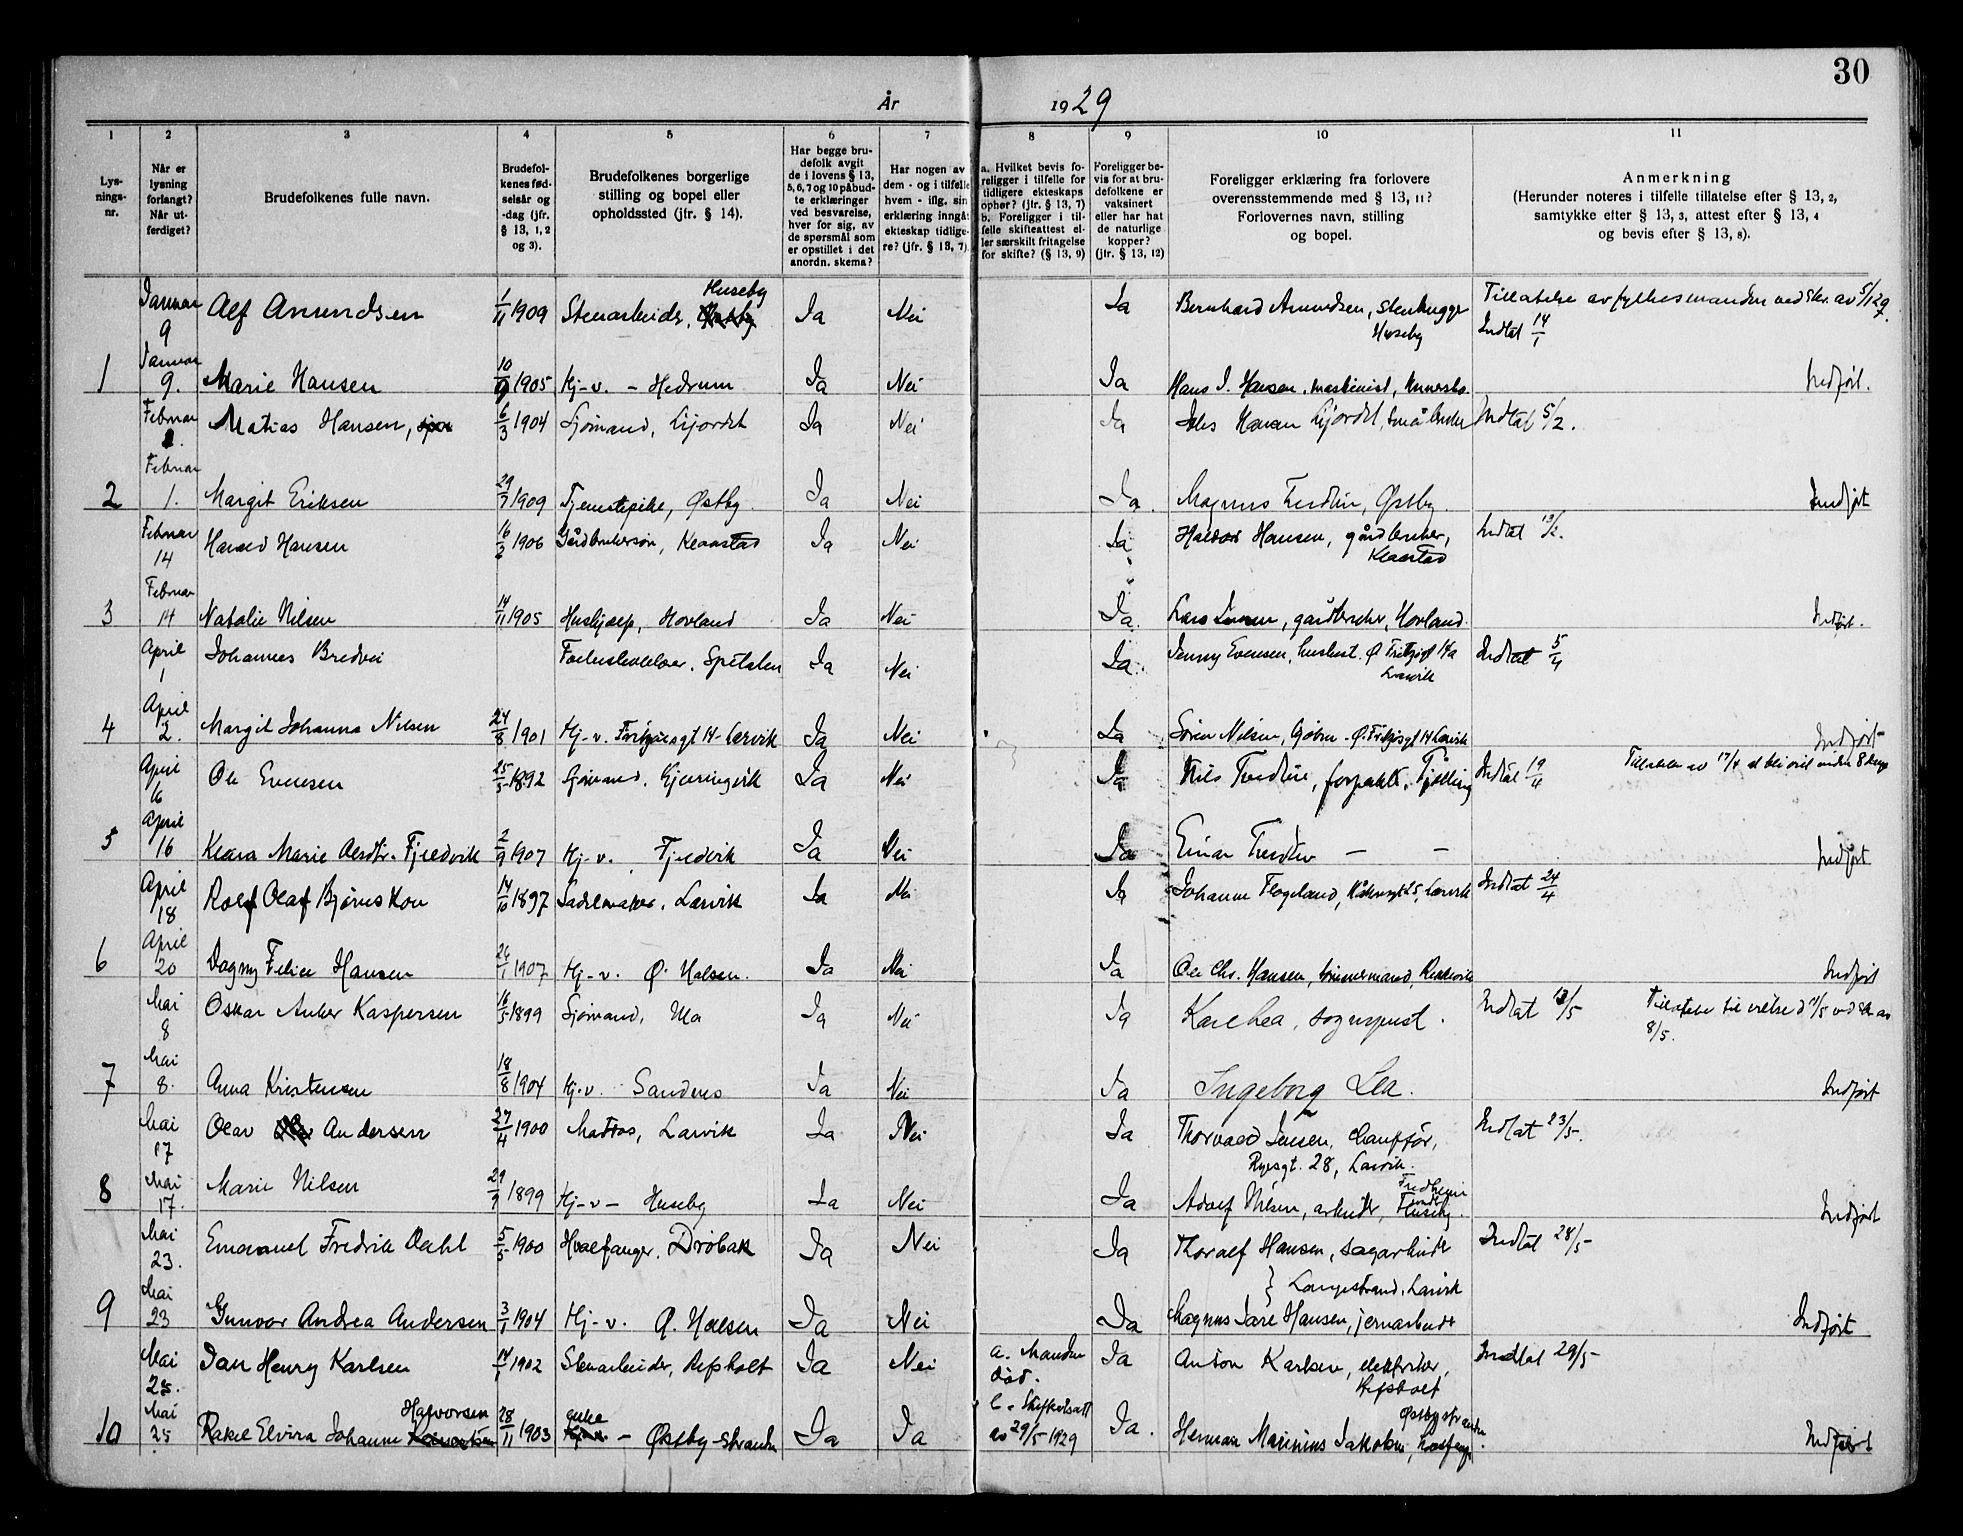 30
År 1929
1 2 3 4 5 6 7 8 9 10 11
Lys-
nings-
nr.
Når er
lysning
forlangt?
Når ut-
ferdiget?
Brudefolkenes fulle navn.
Brudefol-
kenes fød-
selsår og
-dag (jfr.
§ 13, 1, 2
og 3).
Brudefolkenes borgerlige
stilling og bopel eller
opholdssted (jfr. § 14).
Har begge bru-
defolk avgit
de i lovens § 13,
5, 6, 7 og 10 påbud-
te erklæringer
ved besvarelse,
hver for sig, av
de spørsmål som
er opstillet i det
anordn. skema?
Har nogen av
dem - og i tilfelle
hvem - iflg. sin
erklæring inngåt
ekteskap tidlige-
re? (jfr. § 13, 7)
a. Hvilket bevis fo-
religger i tilfelle for
tidligere ekteskaps
ophør? (jfr. § 13, 7)
b. Foreligger i til-
felle skifteattest el-
ler særskilt fritagelse
for skifte? (§ 13, 9)
Foreligger be-
vis for at bru-
defolkene er
vaksinert
eller har hat
de naturlige
kopper?
(jfr. § 13, 12)
Foreligger erklæring fra forlovere
overensstemmende med § 13, 11?
Forlovernes navn, stilling
og bopel.
Anmerkning
(Herunder noteres i tilfelle tillatelse efter § 13, 2,
samtykke efter § 13, 3, attest efter § 13, 4
og bevis efter § 13, 8).
Januar 9 Alf Amundsen 1/11 1909 Stenarbeider, Huseby Ja Nei Ja Bernhard Amundsen, Stenhugger Huseby Tillatelse av fylkesmanden ved skr. av 5/1 29. Indtat 14/1
1 Januar 9. Marie Hansen 10/9 1905 Hj-v. - Hedrum Ja Nei Ja Hans J. Hansen, maskinist, Indført.
Februar 1. Mathias Hansen, 6/3 1904 Sjømand, Ja Nei Ja Hansen småbruker Indtat 5/2.
2 Februar 1. Margit Eriksen 29/7 1909 Tjenestepike, Østby Ja Nei Ja. Magnus Treslin, Østby. Indført
Februar 14 Harald Hansen 16/2 1906 Gårdbrukersøn, Klaastad Ja Nei Ja Halvor Hansen, gårdbruker, Klaastad Indtat 19/2.
3 Februar 14 Natalie Nilsen 14/11 1905 Hushjælp, Hovland Ja Nei Ja. Lars gårdbruker, Hovland. Indført.
April 1 Johannes Bredvei Spetalen Ja Nei Ja. Jenny Evensen, Ø Fritzøegt 14a Larvik Indtat 5/4
4 April 2. Margit Johanna Nilsen 24/8 1901 Hj-v. Fritzøesgt 14 - Larvik Ja Nei Ja Søren Nilsen, - Ø. Fritzøsgt 14 Larvik Indført
April 16 Ole Evensen 25/5 1892 Sjømand, Kjerringvik Ja Nei Ja Nils Treslin, forpakter, Tjølling Indtat 19/4 Tillatelse av 17/4 at bli viet inden 8 dage
5 April 16 Klara Marie Olsdtr. Fjeldvik 2/9 1907 Hj-v. Fjeldvik Ja Nei Ja Einar - - Indført
April 18 Rolf Olaf Bjørnskou 14/10 1897 Sadelmaker, Larvik Ja Nei Ja Johanne Flogeland, 25, Larvik Indtat 24/4
6 April 20 Dagny Felice Hansen 26/1 1907 Hj-v. Ø. Halsen. Ja Nei Ja Ole Chr. Hansen, tømmermand, Rekkevik Indført
Mai 8 Oskar Anker Kaspersen 16/5 1899 Sjømand, Ula Ja Nei Ja Karl Lea, sogneprest. Indtat 13/5 Tillatelse til vielse d 11/5 ved skr av 8/5.
7 Mai 8. Anna Kristensen 18/8 1904 Hj-v. Sandnes Ja Nei Ja Ingeborg Lea. Indført
Mai 17 Olav Andersen 27/4 1900 Matros, Larvik Ja Nei Ja Thorvald Jensen, Chauffør, Ryesgt. 28, Larvik. Indtat 23/5.
8 Mai 17. Marie Nilsen 29/9 1899 Hj-v - Huseby Ja Nei Ja Adolf Nilsen, arbeider, Fredheim under Huseby. Indført
Mai 23. Emanuel Fredrik Dahl 5/5 1900 Hvalfanger, Drøbak Ja Nei Ja Thoralf Hansen, sagarbeider Indtat 28/5
} Langestrand, Larvik
9 Mai 23 Gunvor Andrea Andersen 3/1 1904 Hj-v. Ø. Halsen Ja Nei Ja Magnus Hansen, jernarbeider Indført
Mai 25. Jan Henry Karlsen 14/1 1902 Stenarbeider, Refsholt Ja Nei a. Manden død. Ja Anton Karlsen, elektriker, Refsholt Indtat 29/5
10 Mai 25 Rakel Elvira Johanne Halvorsen 28/11 1903 enke - Østby-stranden Ja Ja b. Skifteattest av 29/5 1929 Ja. Herman Marinius Jakobsen, hvalfanger Østbystranden. Indført